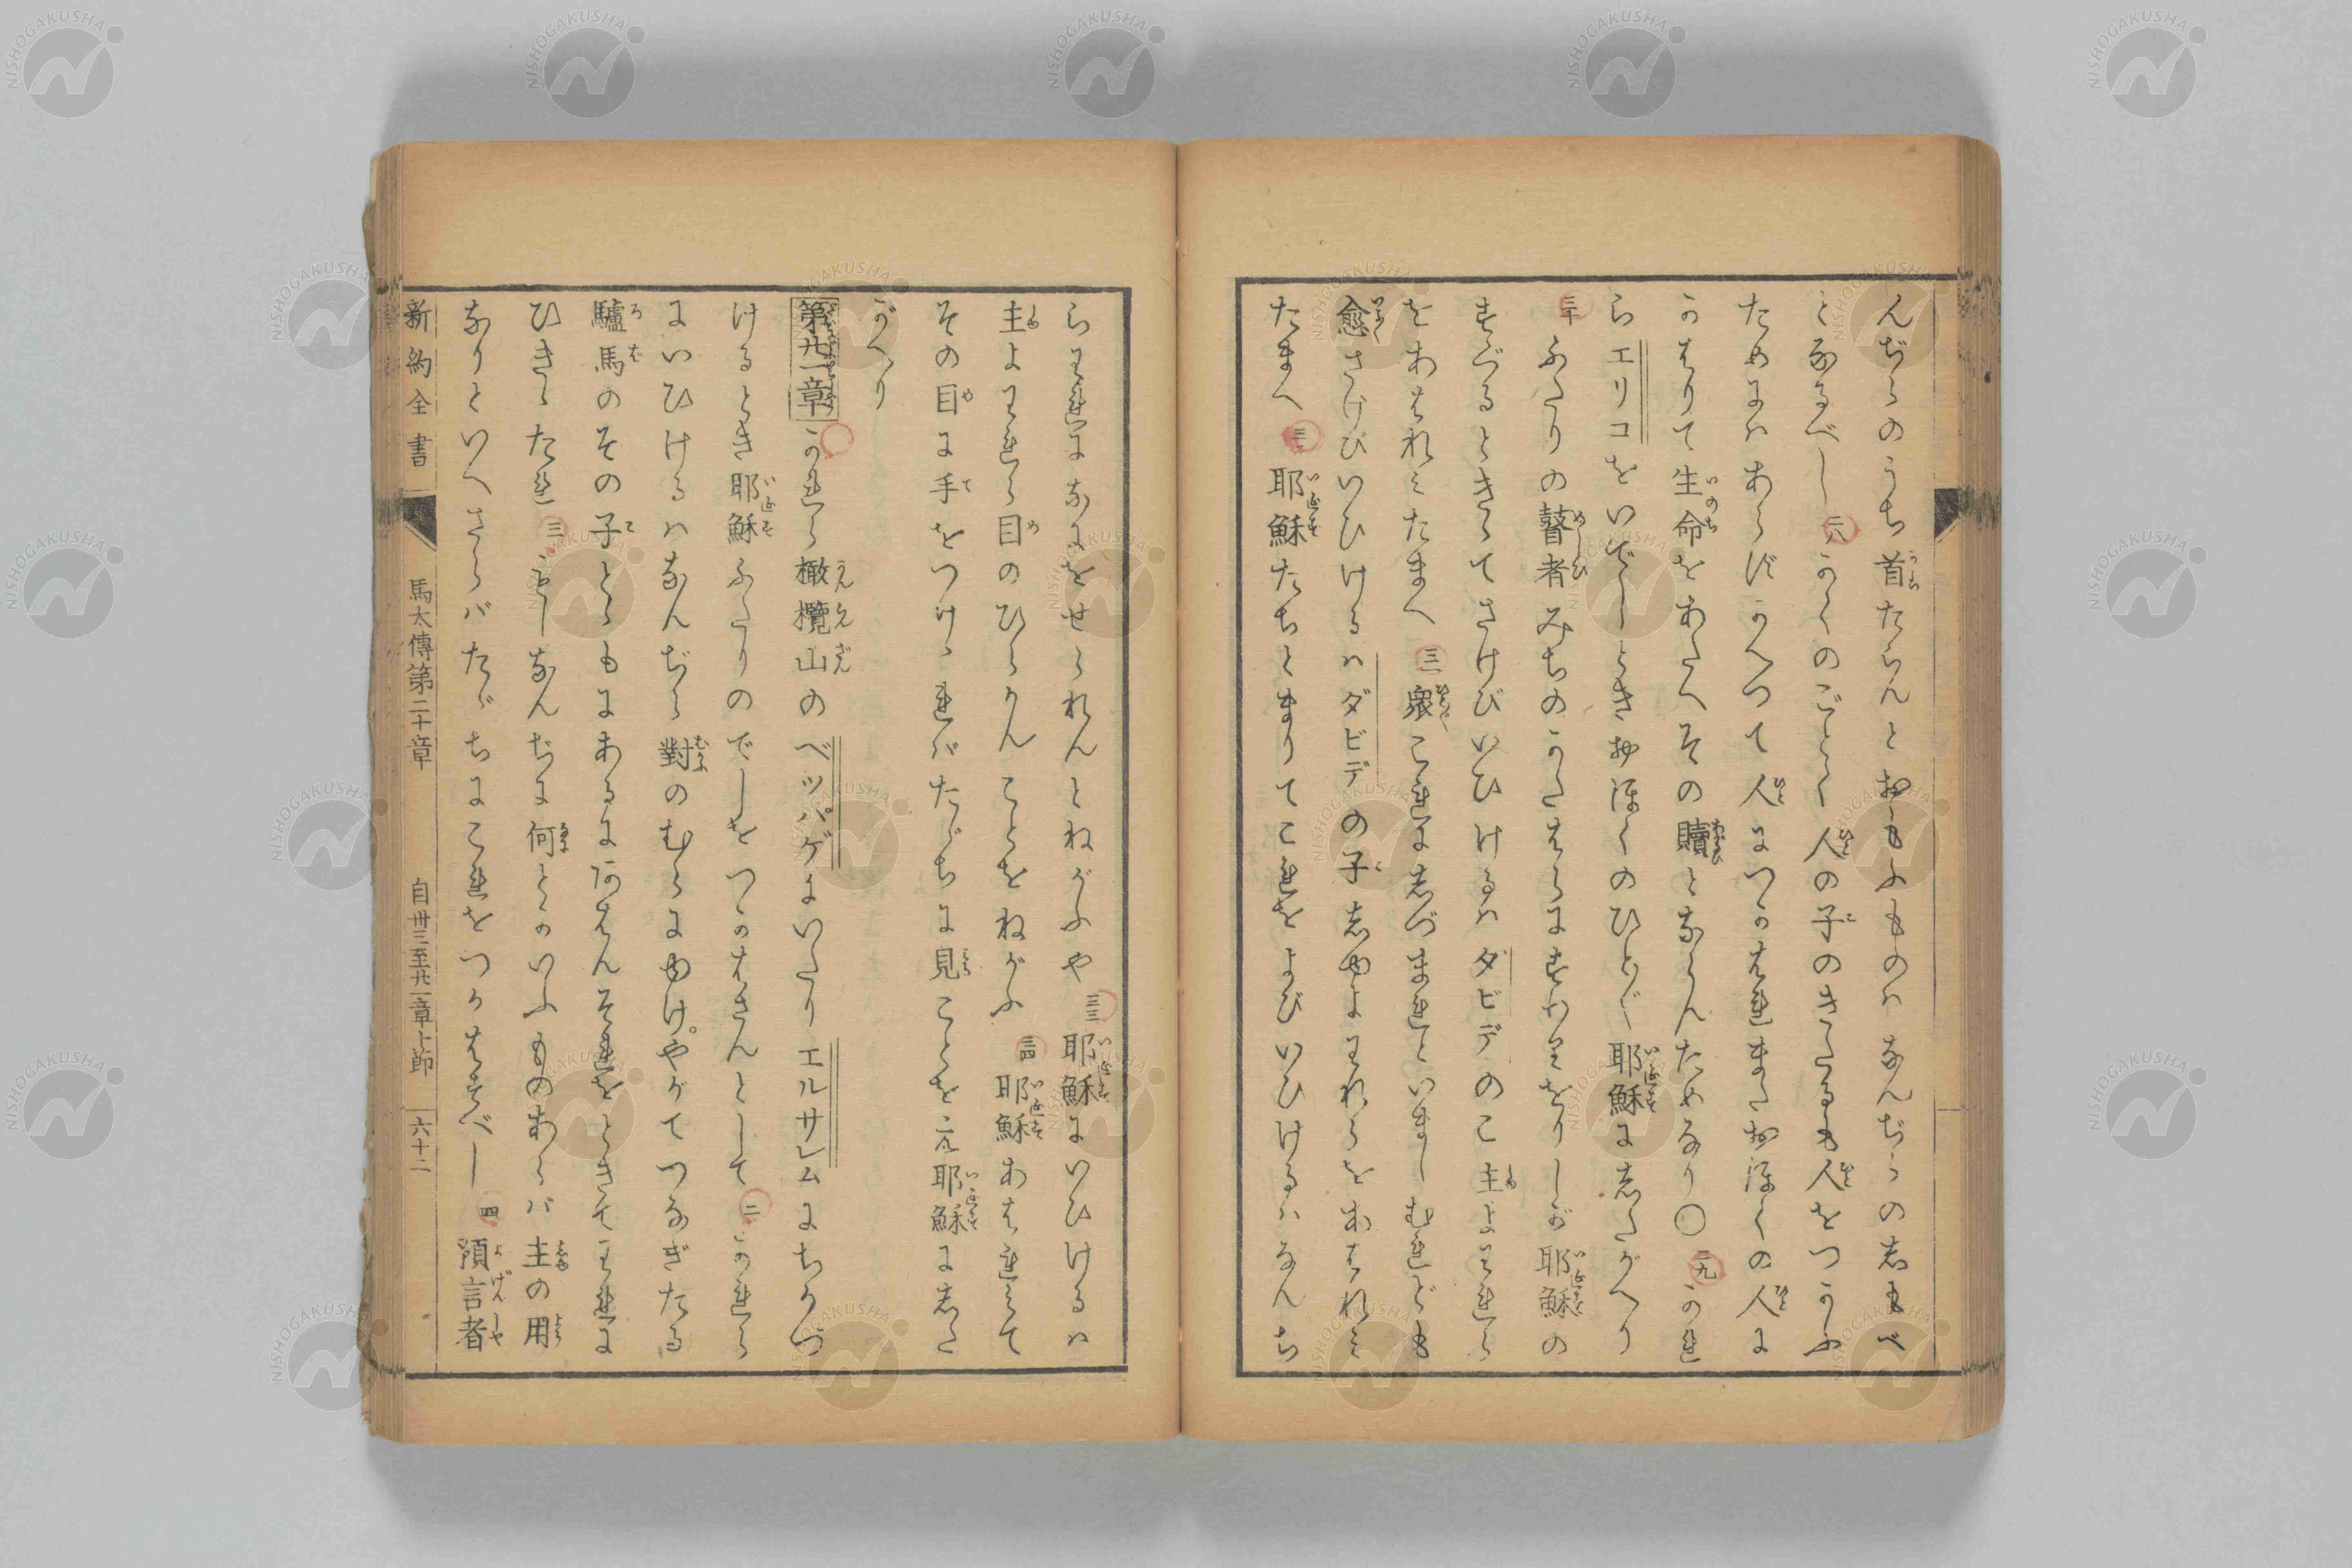 んぢらのうち首たらんとおもふものハなんぢらの志もべ
となるべし 二八 かくのごとく人の子のきたるも人をつかふ
ためにハあらずかへつて人につかはれまたおほくの人に
かはりて生命をあたへその贖とならんためなり〇 二九 かれ
らエリコをいでしときおほくのひとびと耶穌に志たがへり
三十 ふたりの瞽者みちのかたはらにすわりをりしが耶穌の
すぐるときゝてさけびいひけるハダビデのこ主よわれら
をあはれみたまへ 三一 衆これに志づまれといましむれども
愈さけびいひけるハダビデの子志ゆよわれらをあはれみ
たまへ 三二 耶穌たちとまりてこれをよびいひけるハなんぢ
らわれになにをせられんとねがふや 三三 耶穌にいひけるハ
主よわれら目のひらかんことをねがふ 三四 耶穌あはれみて
その目に手をつけゝればたゞちに見ことをえ耶穌に志た
がへり
第廿一章 かれら橄欖山のベツパゲにいたりエルサレムにちかづ
けるとき耶穌ふたりのでしをつかはさんとして 二 かれら
にいひけるハなんぢら對のむらにゆけやがてつなぎたる
驢馬のその子とゝもにあるにあはんそれをときてわれに
ひききたれ 三 もしなんぢに何とかいふものあらバ主の用
なりといへさらバたゞちにこれをつかはすべし 四 預言者
新約全書 馬太傳第二十章 自卅三至廿一章上節 六十二